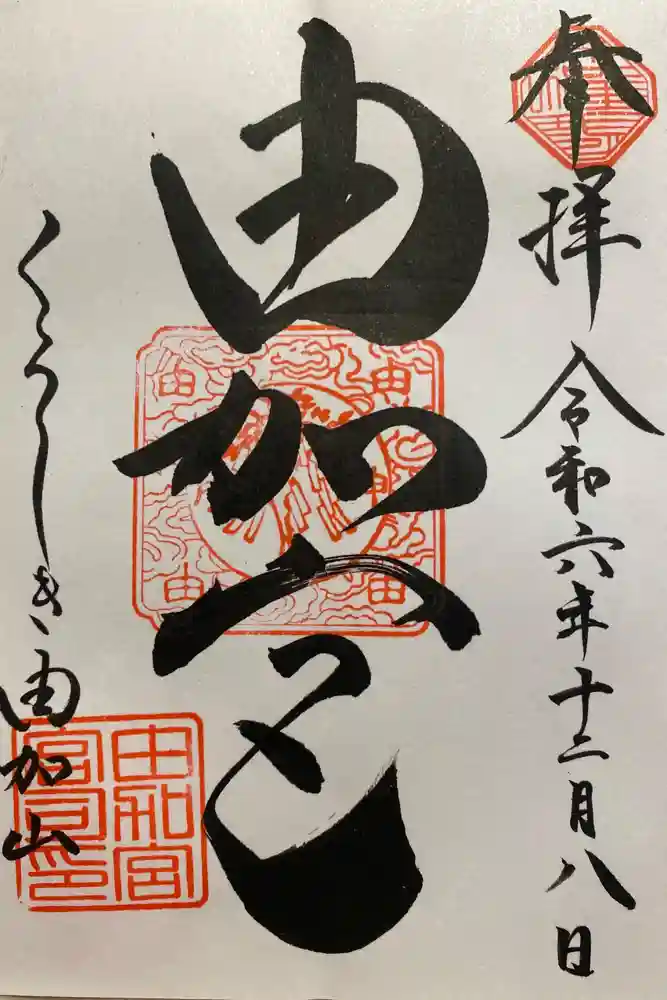 奉拝
令和六年十二月八日
由加宮
くらしき
由加山
由加宮
宮司印
由
由
由
由